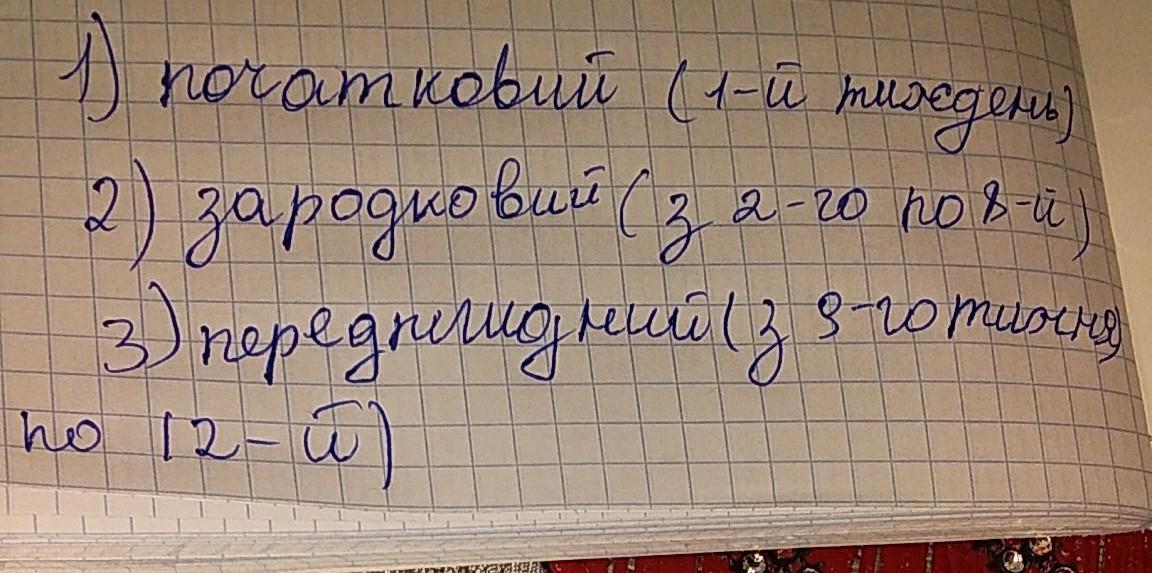 1) початковий (1-й тиждень)
2) зародковий (з 2-го по 8-й)
3) передплидний (з 9-го тижня)
по 12-й)